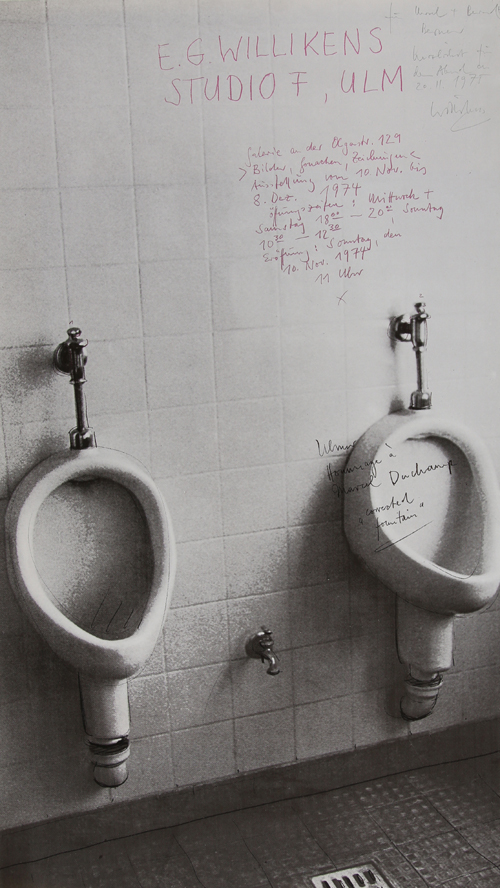 E.G. WILLIKENS
STUDIO F, ULM
Galerie an der Olgastr. 129
> Bilder, Gouachen, Zeichnungen <
Ausstellung vom 10 Nov. bis
8. Dez. 1974
öfnungszeiten: Mittwoch +
Samstag 18⁰⁰ — 20⁰⁰, Sonntag
10³⁰ — 12³⁰
Eröfnung: Sonntag, den
10. Nov. 1974
11 Uhr
X
Hommage à
Marcel Duchamp
"corrected
fountain"